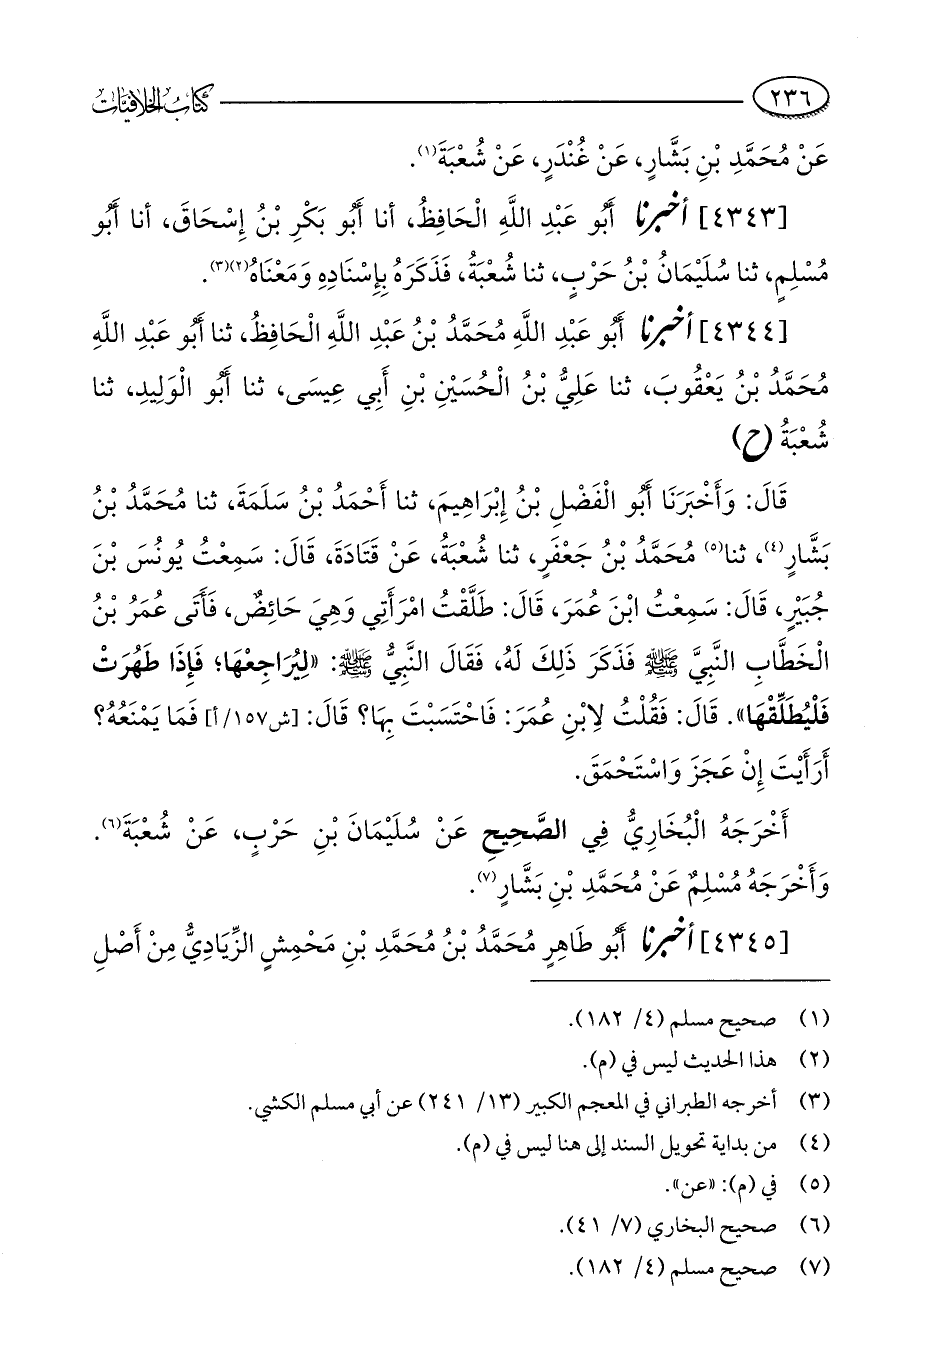 ٢٣٦ كتاب الخلافيات
عَنْ مُحَمَّدِ بْنِ بَشَّارٍ، عَنْ غُنْدَرٍ، عَنْ شُعْبَةَ(١).
[٤٣٤٣] أخبرنا أَبُو عَبْدِ اللَّهِ الْحَافِظُ، أنا أَبُو بَكْرِ بْنُ إِسْحَاقَ، أنا أَبُو
مُسْلِمٍ، ثنا سُلَيْمَانُ بْنُ حَرْبٍ، ثنا شُعْبَةُ، فَذَكَرَهُ بِإِسْنَادِهِ وَمَعْنَاهُ(٢)(٣).
[٤٣٤٤] أخبرنا أَبُو عَبْدِ اللَّهِ مُحَمَّدُ بْنُ عَبْدِ اللَّهِ الْحَافِظُ، ثنا أَبُو عَبْدِ اللَّهِ
مُحَمَّدُ بْنُ يَعْقُوبَ، ثنا عَلِيُّ بْنُ الْحُسَيْنِ بْنِ أَبِي عِيسَى، ثنا أَبُو الْوَلِيدِ، ثنا
شُعْبَةُ (ح)
قَالَ: وَأَخْبَرَنَا أَبُو الْفَضْلِ بْنُ إِبْرَاهِيمَ، ثنا أَحْمَدُ بْنُ سَلَمَةَ، ثنا مُحَمَّدُ بْنُ
بَشَّارٍ(٤)، ثنا(٥) مُحَمَّدُ بْنُ جَعْفَرٍ، ثنا شُعْبَةُ، عَنْ قَتَادَةَ، قَالَ: سَمِعْتُ يُونُسَ بْنَ
جُبَيْرٍ، قَالَ: سَمِعْتُ ابْنَ عُمَرَ، قَالَ: طَلَّقْتُ امْرَأَتِي وَهِيَ حَائِضٌ، فَأَتَى عُمَرُ بْنُ
الْخَطَّابِ النَّبِيَّ ﷺ فَذَكَرَ ذَلِكَ لَهُ، فَقَالَ النَّبِيُّ ﷺ: «لِيُرَاجِعْهَا؛ فَإِذَا طَهُرَتْ
فَلْيُطَلِّقْهَا». قَالَ: فَقُلْتُ لِابْنِ عُمَرَ: فَاحْتَسَبْتَ بِهَا؟ قَالَ: [ش١٥٧/أ] فَمَا يَمْنَعُهُ؟
أَرَأَيْتَ إِنْ عَجَزَ وَاسْتَحْمَقَ.
أَخْرَجَهُ الْبُخَارِيُّ فِي الصَّحِيحِ عَنْ سُلَيْمَانَ بْنِ حَرْبٍ، عَنْ شُعْبَةَ(٦).
وَأَخْرَجَهُ مُسْلِمٌ عَنْ مُحَمَّدِ بْنِ بَشَّارٍ(٧).
[٤٣٤٥] أخبرنا أَبُو طَاهِرٍ مُحَمَّدُ بْنُ مُحَمَّدِ بْنِ مَحْمِشٍ الزِّيَادِيُّ مِنْ أَصْلِ
(١) صحيح مسلم (٤/ ١٨٢).
(٢) هذا الحديث ليس في (م).
(٣) أخرجه الطبراني في المعجم الكبير (١٣/ ٢٤١) عن أبي مسلم الكشي.
(٤) من بداية تحويل السند إلى هنا ليس في (م).
(٥) في (م): «عن».
(٦) صحيح البخاري (٧/ ٤١).
(٧) صحيح مسلم (٤/ ١٨٢).